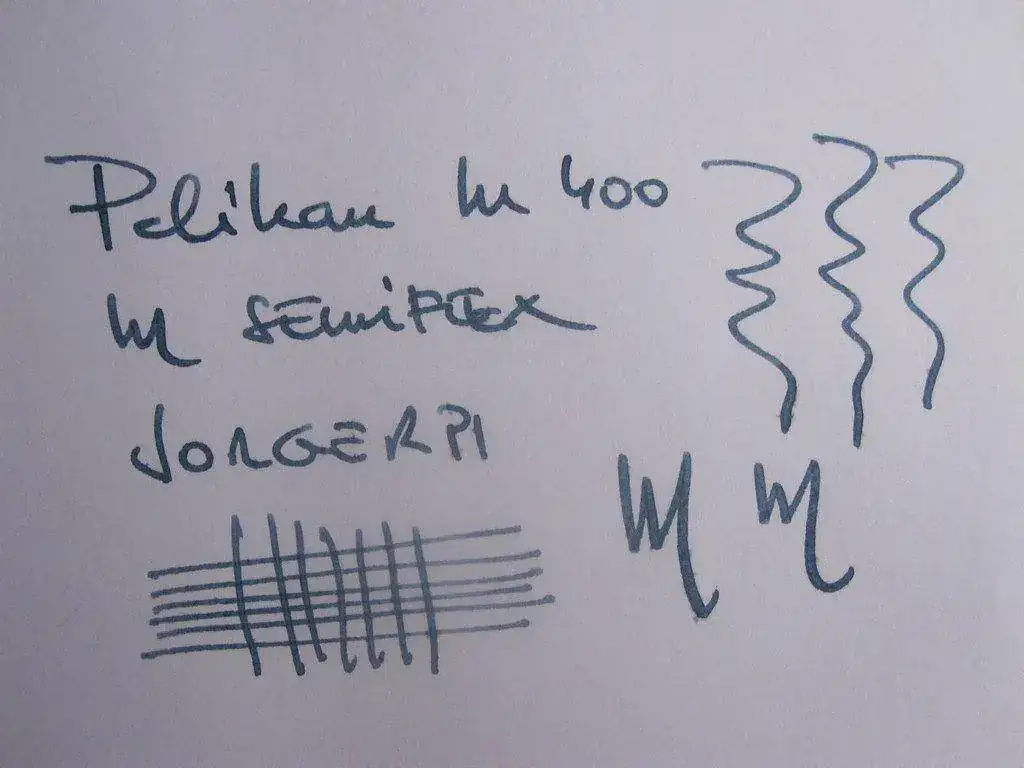 Pelikan M 400
M SEMIFLEX
JORGERPI
M M